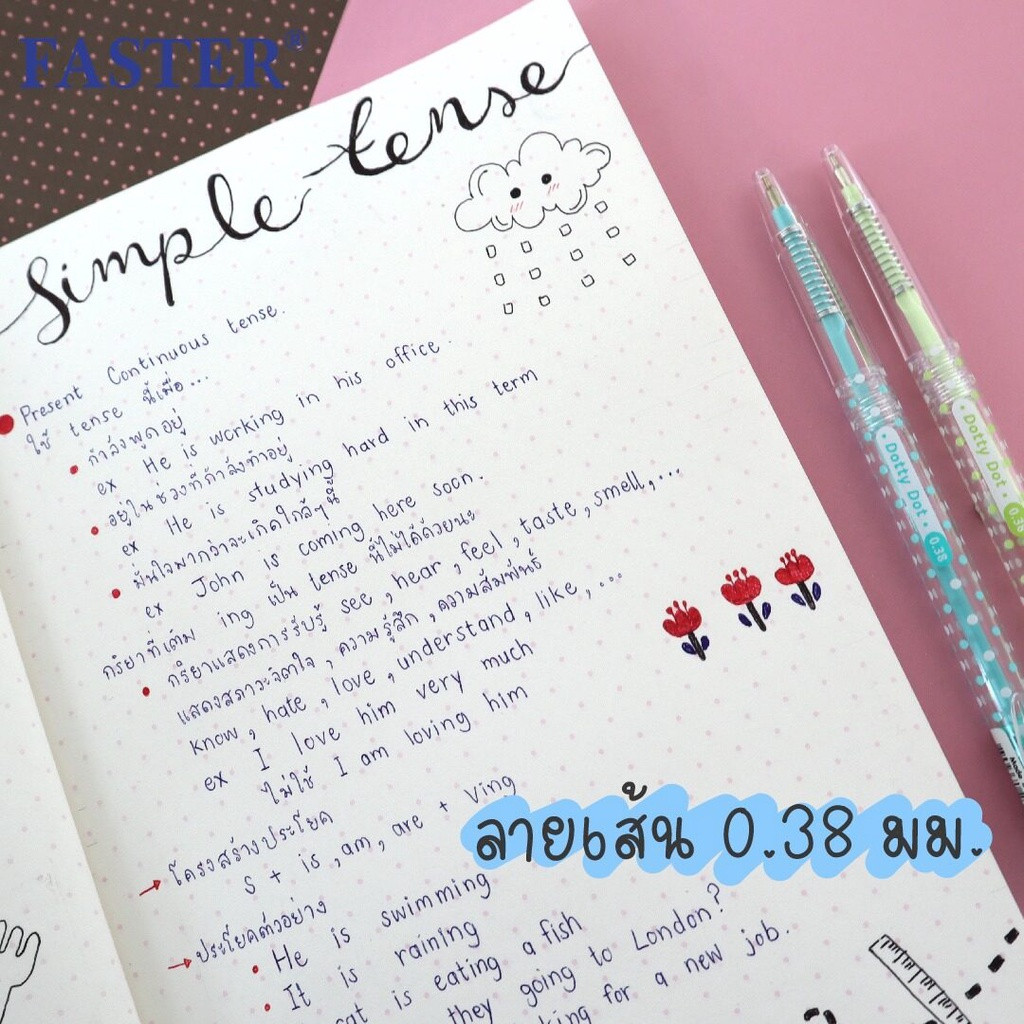 FASTER®
simple tense
Present Continuous tense.
ใช้ tense นี้เมื่อ...
กำลังพูดอยู่
ex He is working in his office.
อยู่ในช่วงที่กำลังทำอยู่
ex He is studying hard in this term
มั่นใจมากว่าจะเกิดใกล้ๆนี้
ex John is coming here soon.
กริยาที่เติม ing เป็น tense นี้ไม่ได้ด้วยนะ
กริยาแสดงการรับรู้ see, hear, feel, taste, smell,...
แสดงสภาวะจิตใจ, ความรู้สึก, ความสัมพันธ์
know, hate, love, understand, like,...
ex I love him very much
ไม่ใช้ I am loving him
โครงสร้างประโยค
S + is, am, are + Ving
ประโยคตัวอย่าง
He is swimming
It is raining
cat is eating a fish
they going to London?
king for a new job.
Dotty Dot 0.38
Dotty Dot 0.38
ลายเส้น 0.38 มม.